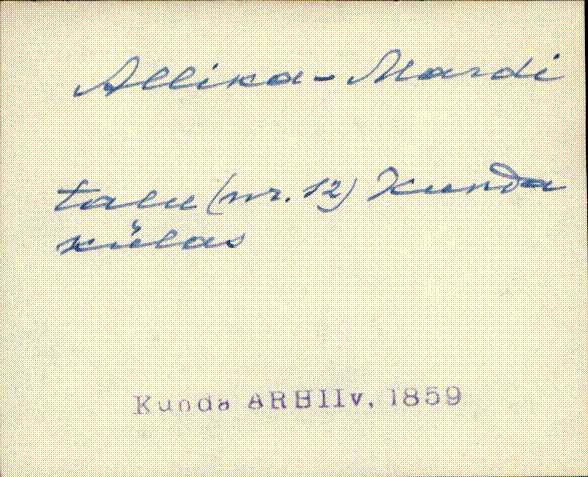 Allika-Mardi
talu (nr. 12) Kunda
külas
Kunda ARHIIv, 1859